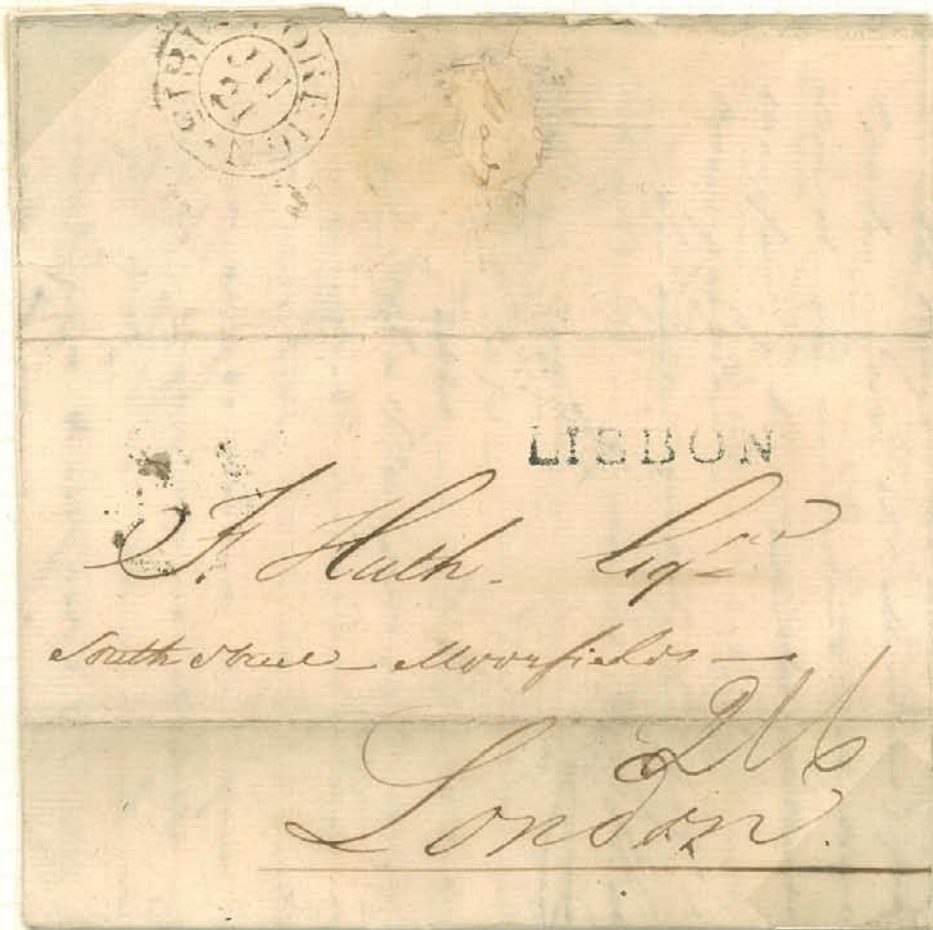 FOREIGN
LISBON
F. Huth. Esqre
South Street — Moorfields —
2/6
London.